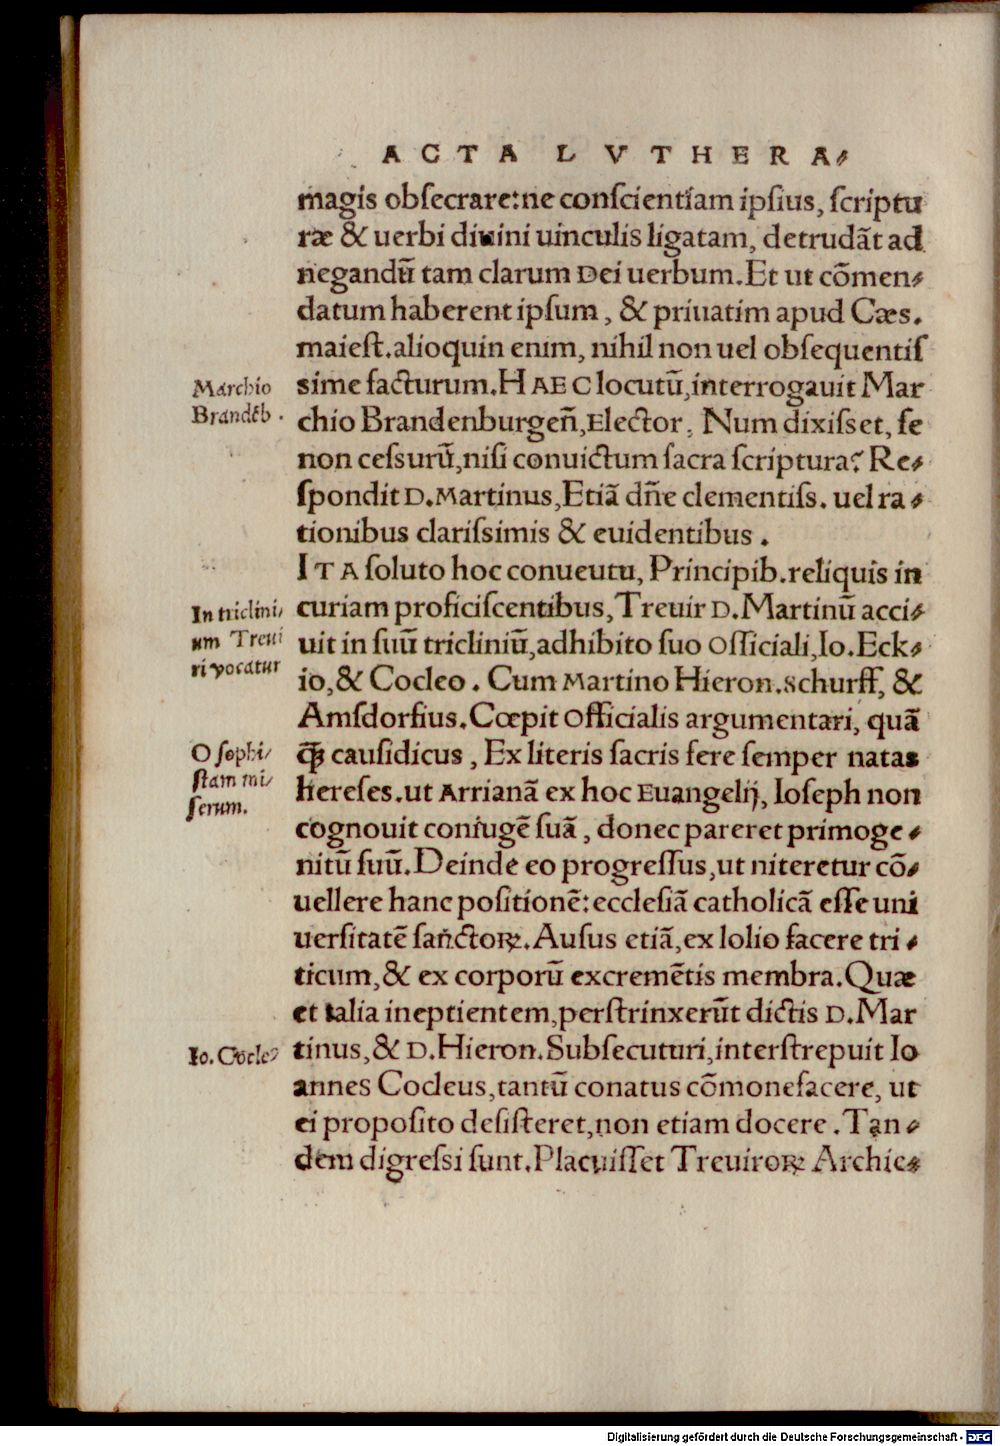 ACTA LVTHERA⸗
magis obſecrare: ne conſcientiam ipſius, ſcriptu
ræ & uerbi diuini uinculis ligatam, detrudāt ad
negandū tam clarum Dei uerbum. Et ut cōmen⸗
datum haberent ipſum, & priuatim apud Cæs.
maieſt. alioquin enim, nihil non uel obſequentiſ
Marchio
Brandēb.
ſime facturum. HAEC locutū, interrogauit Mar
chio Brandenburgeñ, Elector. Num dixiſset, ſe
non ceſsurū, niſi conuictum ſacra ſcriptura? Re⸗
ſpondit D. Martinus, Etiā dñe clementiſs. uel ra⸗
tionibus clariſsimis & euidentibus.
ITA ſoluto hoc conueutu, Principib. reliquis in
In triclini⸗
um Treui
ri vocatur
curiam proficiſcentibus, Treuir D. Martinū acci⸗
uit in ſuū tricliniū, adhibito ſuo Officiali, Io. Eck⸗
io, & Cocleo. Cum Martino Hieron. Schurff, &
Amſdorfius. Cœpit Officialis argumentari, quā
O ſophi⸗
ſtam mi⸗
ſerum.
ꝙ̃ cauſidicus, Ex literis ſacris fere ſemper natas
hereſes. ut Arrianā ex hoc Euangelij, Ioſeph non
cognouit coniugē ſuā, donec pareret primoge⸗
nitū ſuū. Deinde eo progreſſus, ut niteretur cō⸗
uellere hanc poſitionē: eccleſiā catholicā eſſe uni
uerſitatē ſañctoꝝ. Auſus etiā, ex lolio facere tri⸗
ticum, & ex corporū excremētis membra. Quæ
et talia ineptientem, perſtrinxerūt dictis D. Mar
Io. Cocle⁹
tinus, & D. Hieron. Subſecuturi, interſtrepuit Io
annes Cocleus, tantū conatus cōmonefacere, ut
ei propoſito deſiſteret, non etiam docere. Tan⸗
dem digreſsi ſunt. Placuiſſet Treuiroꝝ Archie⸗
Digitalisierung gefördert durch die Deutsche Forschungsgemeinschaft - DFG